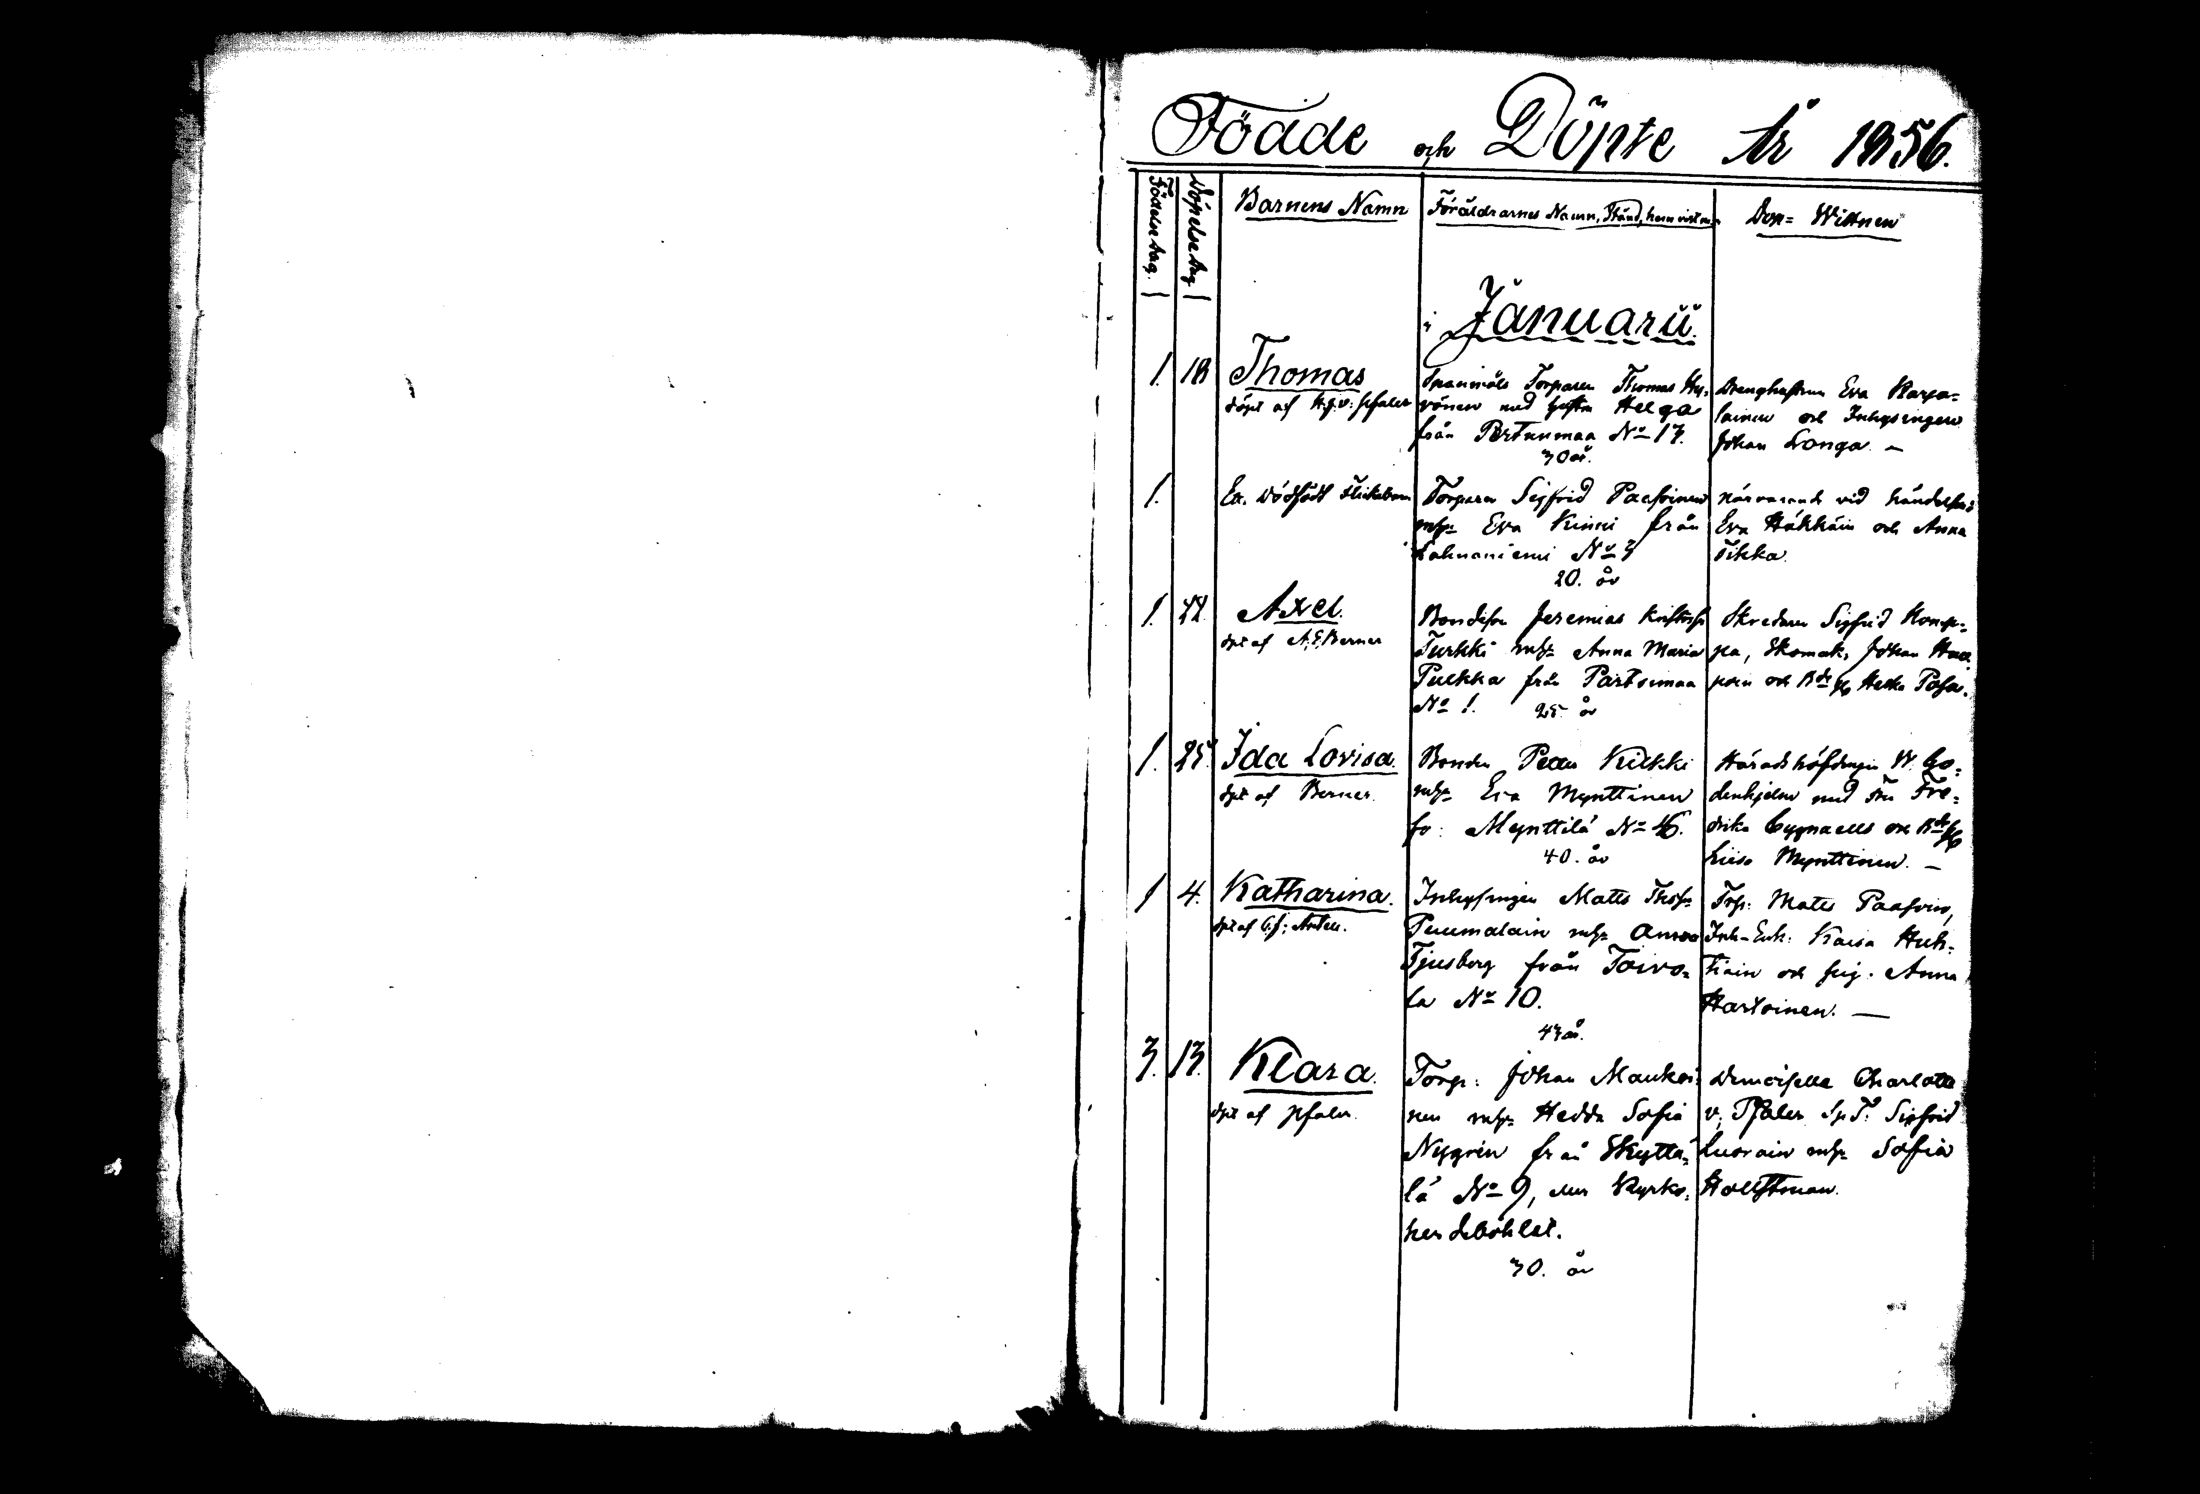 Födde och Döpte År 1856.
Födelse dag.
Döpelse dag
Barnens Namn
Föräldrarnes Namn, Stånd, hemvist
Dop= Wittnen
i Januarii.
1. 18 Thomas
döpt af v: Pfaler
Torparen Thomas
med hustru Helga
från Pertunmaa No 17.
30 år.
Drenghustrun Eva Karpa=
lainen och Inhysingen
Johan Longa. —
1. Ett dödfödt flickebarn
Torparen Sigfrid Paasoinen
mh= Eva Kinni från
Lahnaniemi No 3
20. år
närvarande vid händelsen
Eva Häkkäin och Anna
Tikka.
1. 22. Axel.
dpt af A. E. Berner
Bondeson Jeremias
Turkki mh= Anna Maria
Pulkka från Pärtsimaa
No 1. 25 år
Skredaren Sigfrid Komp=
pa, Skomak. Johan
och Hedda
1. 25. Ida Lovisa.
dpt af Berner.
Bonden Petter Kirkki
mh= Eva Mynttinen
fr: Mynttilä No
40. år
Häradshöfdingen W. Go=
denhjelm med Fru Fre=
drika Cygnaeus och
Liisa Mynttinen. —
1 4. Katharina.
dpt af Antell.
Inhysingen Matts
Puumalain mh= Anna
Tjusberg från Toivo=
la No 10.
43 år.
Torp: Matts Paasoin,
Inh-Enk: Kaisa Huh=
tiain och pig. Anna
Hartoinen. —
3. 13. Klara.
dpt af Pfaler.
Torp: Johan Maukoi=
nen mh= Hedda Sofia
Nygrén från Skyttä=
lä No 9, Kyrko=
herdebohlet.
30. år
Demoiselle Charlotta
v. Pfaler Sp T: Sigfrid
Luorain mh= Sofia
Hollstman.